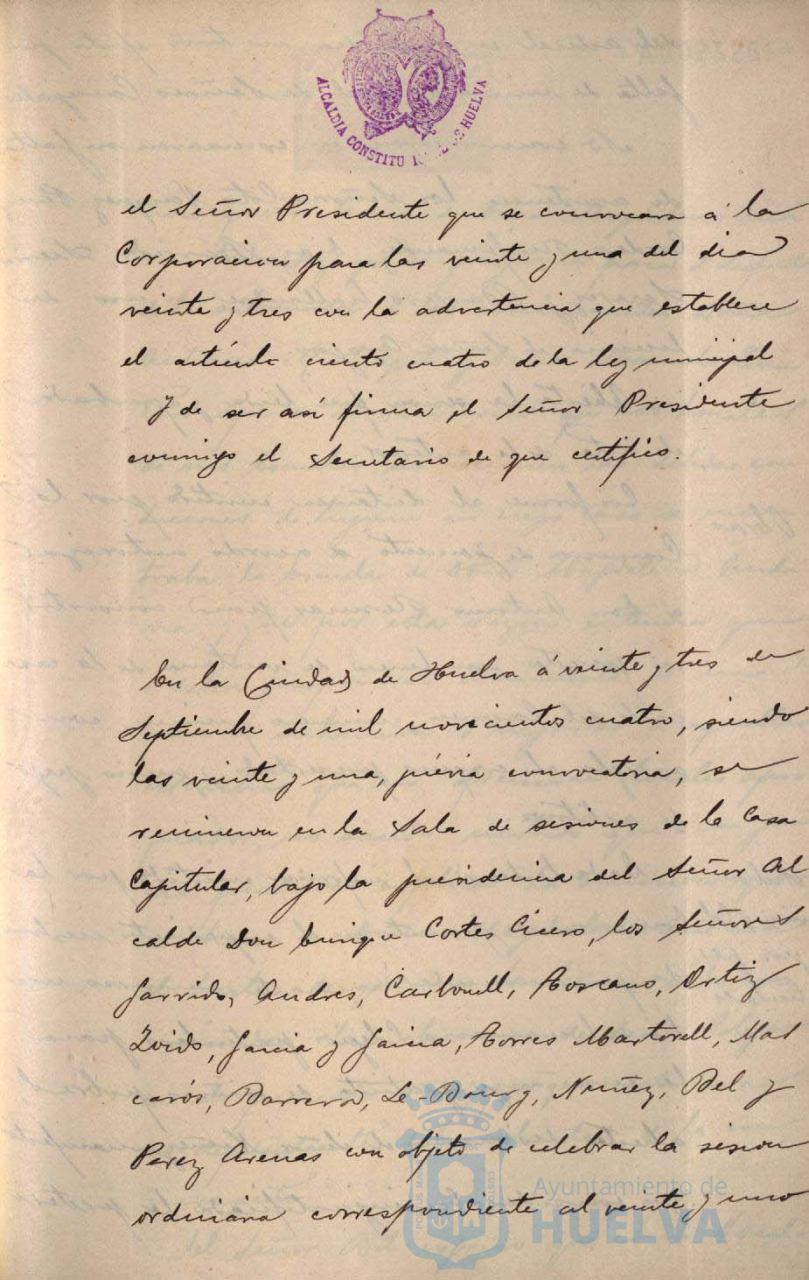 ALCALDIA CONSTITU DE HUELVA
el Señor Presidente que se convocara á la
Corporacion para las veinte y una del dia
veinte y tres con la advertencia que establece
el artículo ciento cuatro de la ley municipal
y de ser así firma el Señor Presidente
conmigo el Secretario de que certifico.
En la Ciudad de Huelva á veinte y tres de
Septiembre de mil novecientos cuatro, siendo
las veinte y una, prévia convocatoria, se
reunieron en la Sala de sesiones de la Casa
Capitular, bajo la presidencia del Señor Al
calde Don Enrique Cortes Cicero, los Señores
Garrido, Andres, Carbonell, Toscano, Ortiz
García y García, Torres Martorell, Mas
carós, Barrera, Le-Bourg, Nuñez, Bel y
Perez Arenas con objeto de celebrar la sesion
ordinaria correspondiente al veinte y uno
Ayuntamiento de
HUELVA